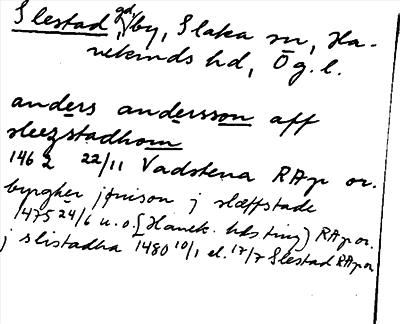 Slestad gd, by, Slaka sn, Ha-
nekinds hd, Ög.l.
anders andersson aff
sleezstadhom
1462 22/11 Vadstena RAp or.
byrgher jönison j slæffstade
1475 24/6 u.o. [Hanek. hds ting] RAp or.
j slistadha 1480 10/1 el. 17/7 Slestad RAp or